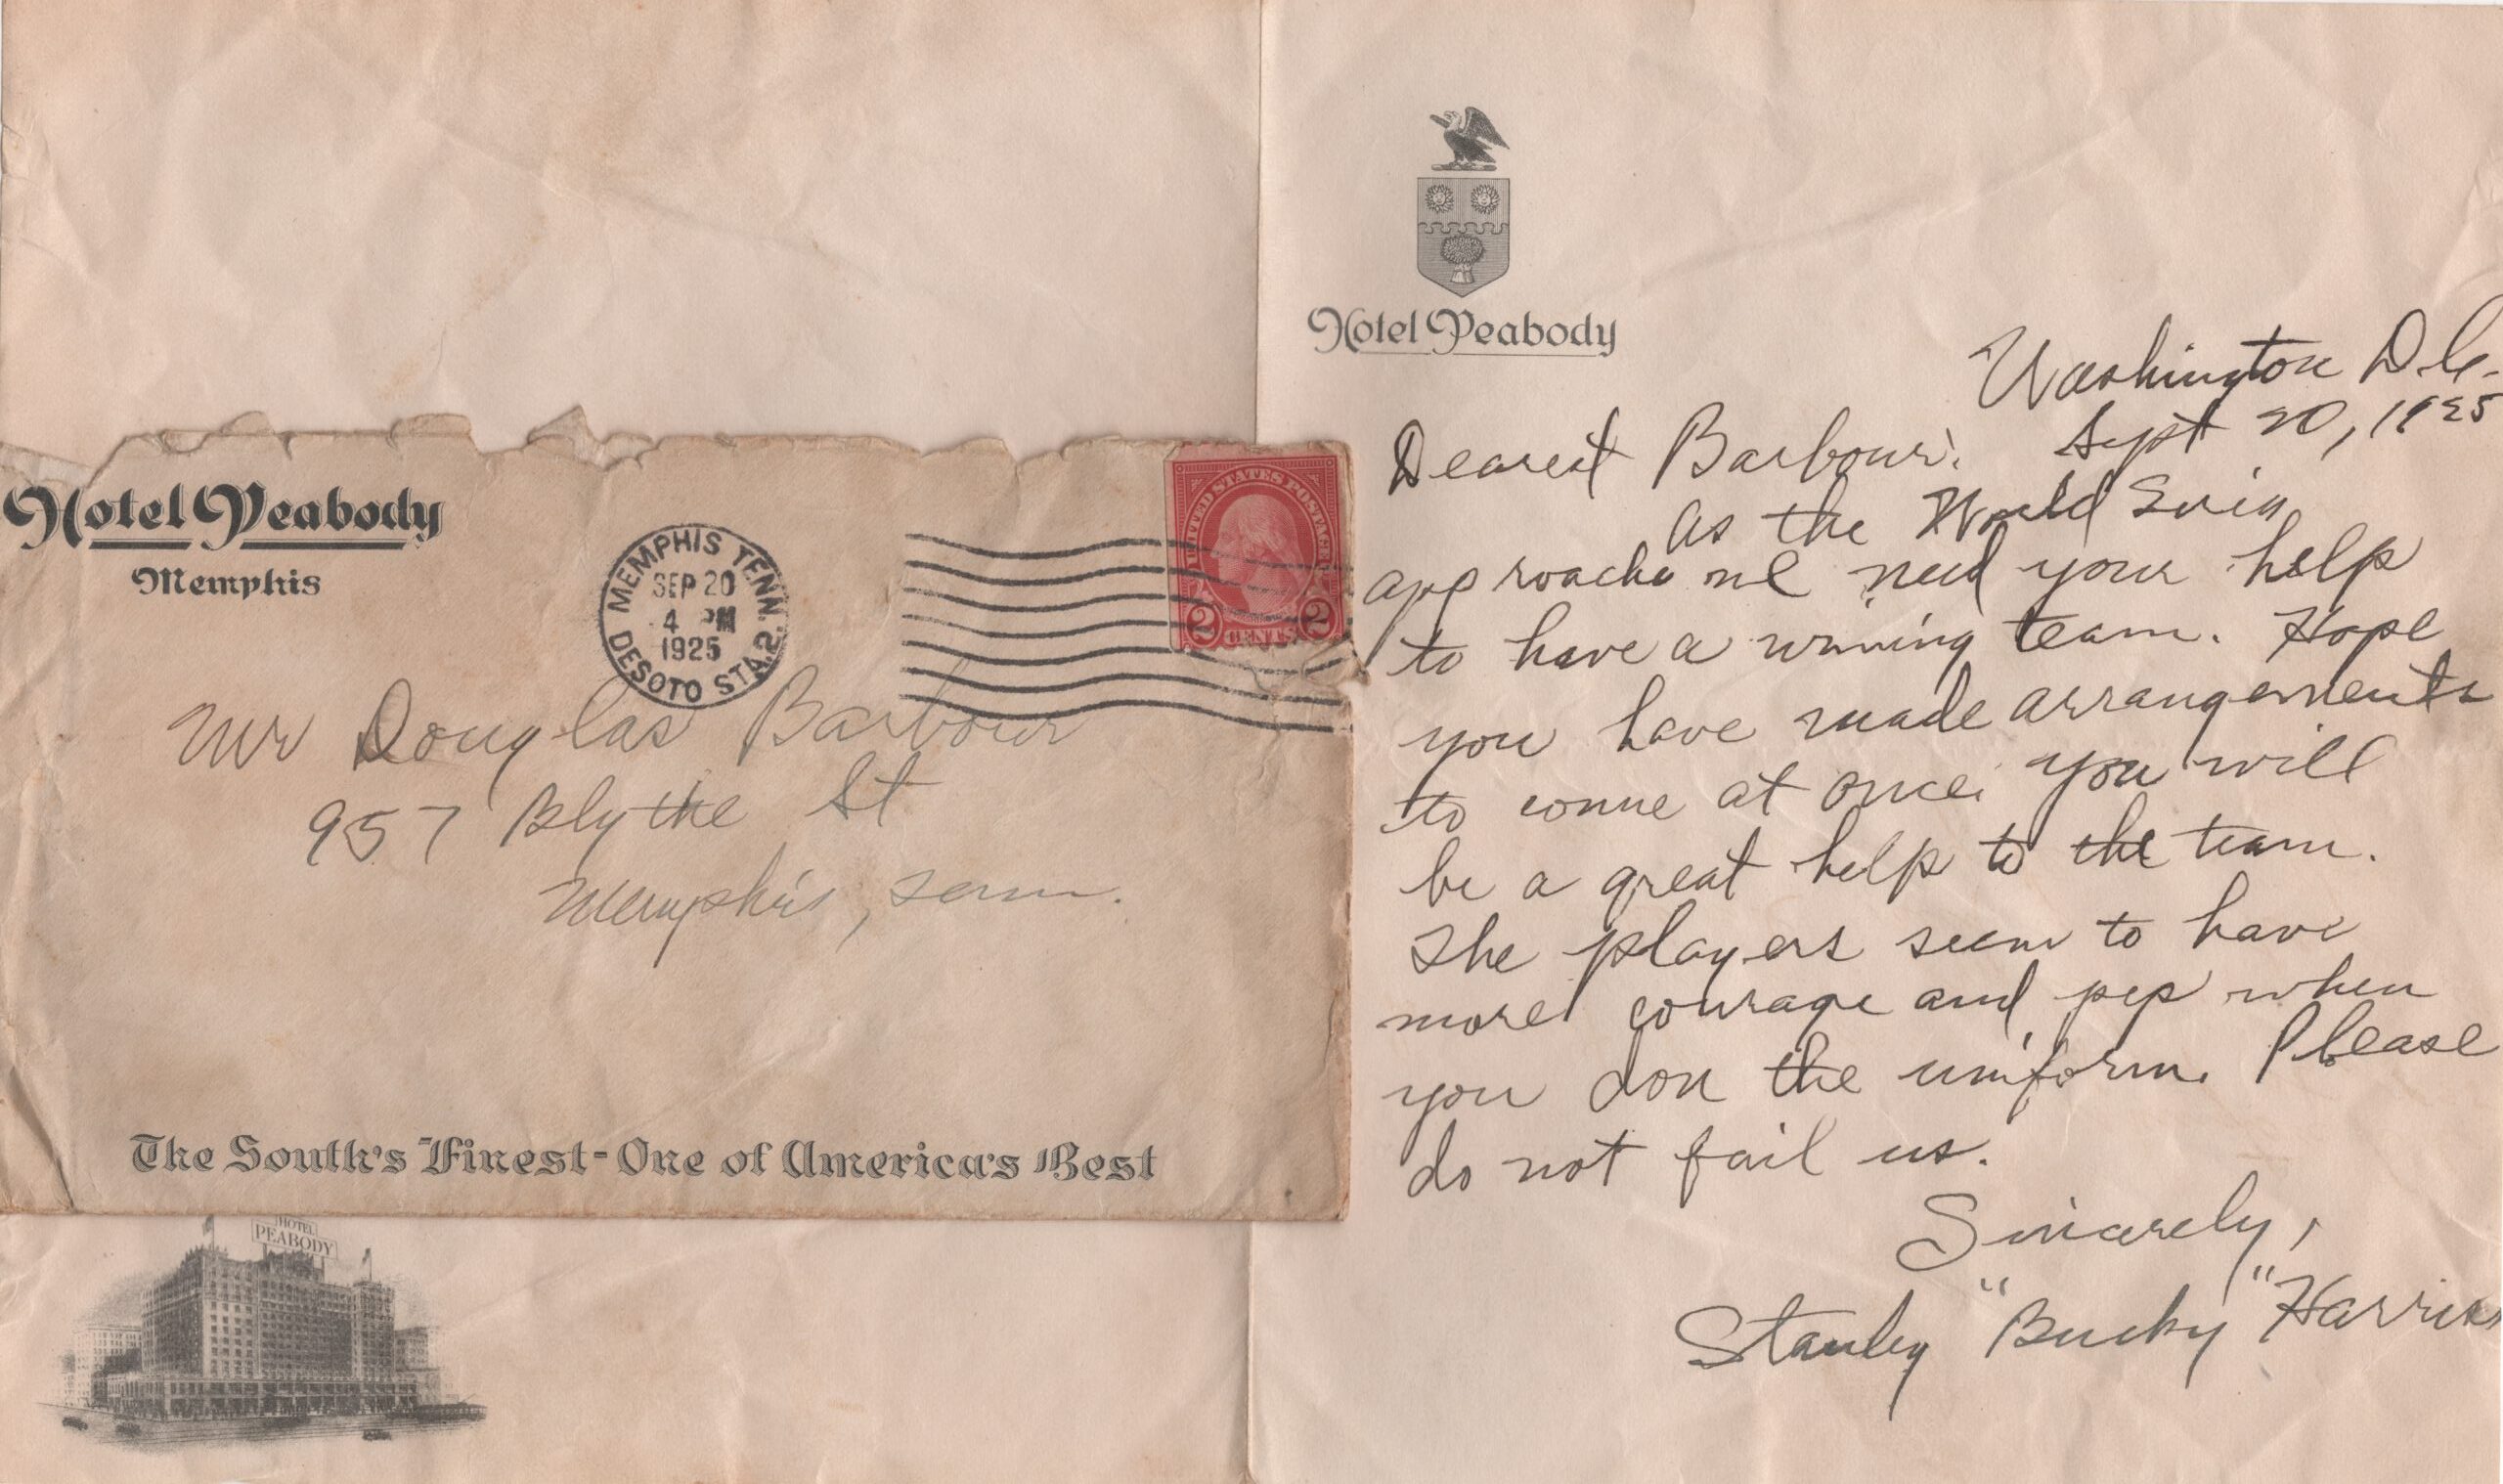 Hotel Peabody
Memphis
MEMPHIS TENN.
SEP 20
4 PM
1925
DESOTO STA. 2.
UNITED STATES POSTAGE
2 CENTS 2
Mr Douglas Barbour
957 Blythe St
Memphis, Tenn.
The South's Finest-One of America's Best
HOTEL
PEABODY
Hotel Peabody
Washington D.C.
Sept 20, 1925
Dearest Barbour:
As the World Series
approache we need your help
to have a winning team. Hope
you have made arrangements
to come at once. You will
be a great help to the team.
The players seem to have
more courage and pep when
you don the uniform. Please
do not fail us.
Sincerely,
Stanley "Bucky" Harris